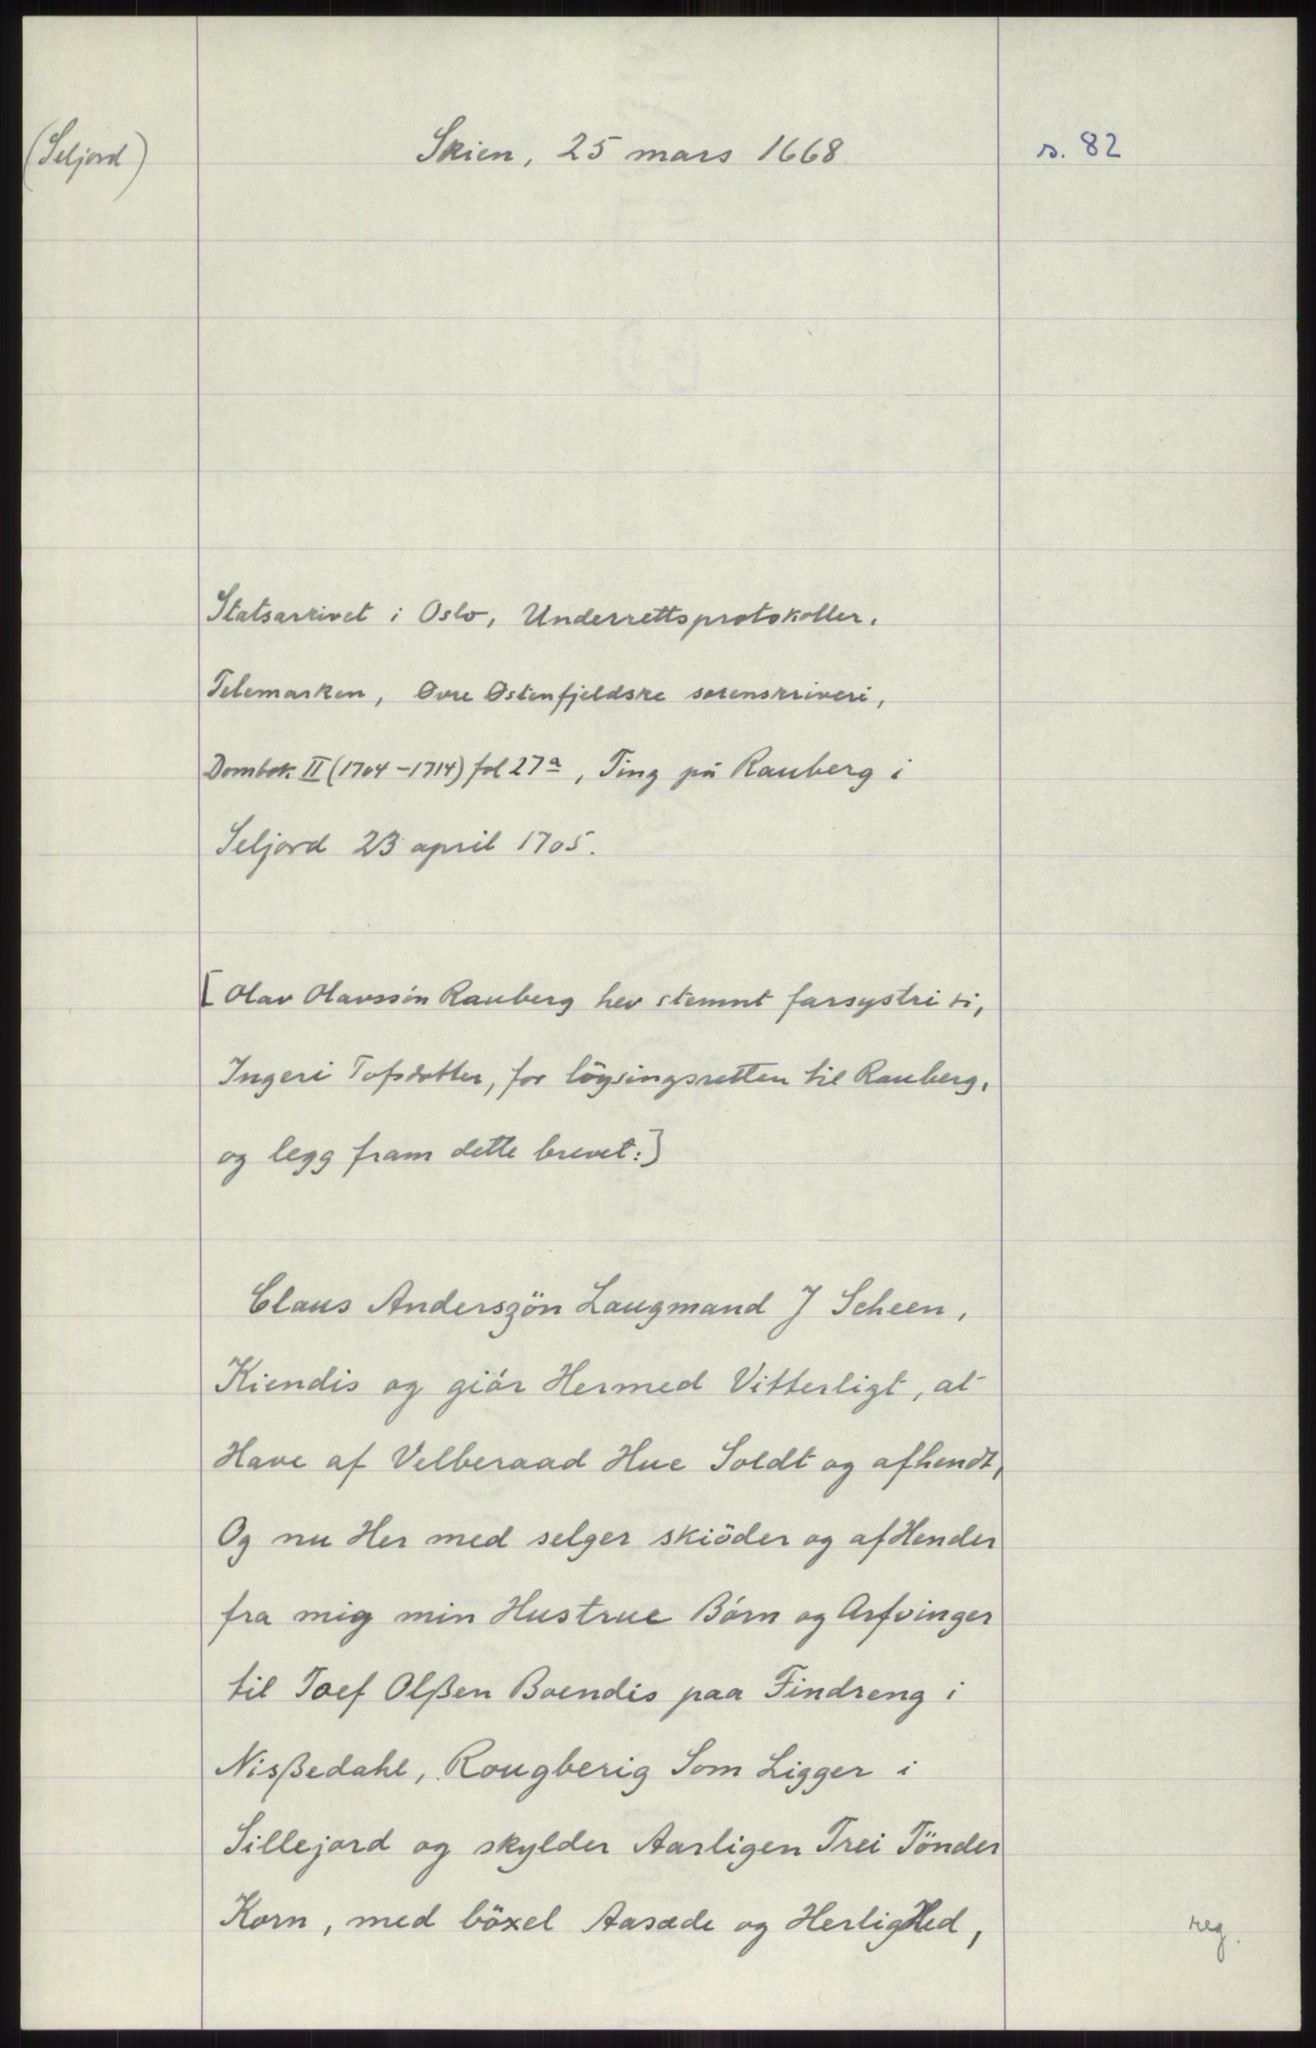 (Seljord)
Skien, 25 mars 1668
s. 82
Statsarkivet i Oslo, Underrettsprotokoller.
Telemarken, Øvre Østenfjeldske sorenskriveri,
Dombok II (1704-1714) fol 27a, Ting på Rauberg i
Seljord 23 april 1705.
[Olav Olavssön Rauberg hev stemnt farsystri si,
Ingeri Tofsdotter, for löysingsretten til Rauberg,
og legg fram dette brevet:]
Claus Anderszön Laugmand J Scheen,
Kiendis og giör Hermed Vitterligt, at
Have af Velberaad Hue Soldt og afhendt,
Og nu Her med selger skiöder og afHender
fra mig min Hustrue Börn og Arfvinger
til Toef Olßen Boendis paa Findreng i
Nißedahl, Rougberig Som Ligger i
Sillejord og skylder Aarligen Trei Tönder
Korn, med böxel Aasæde og HerligHed,
reg.